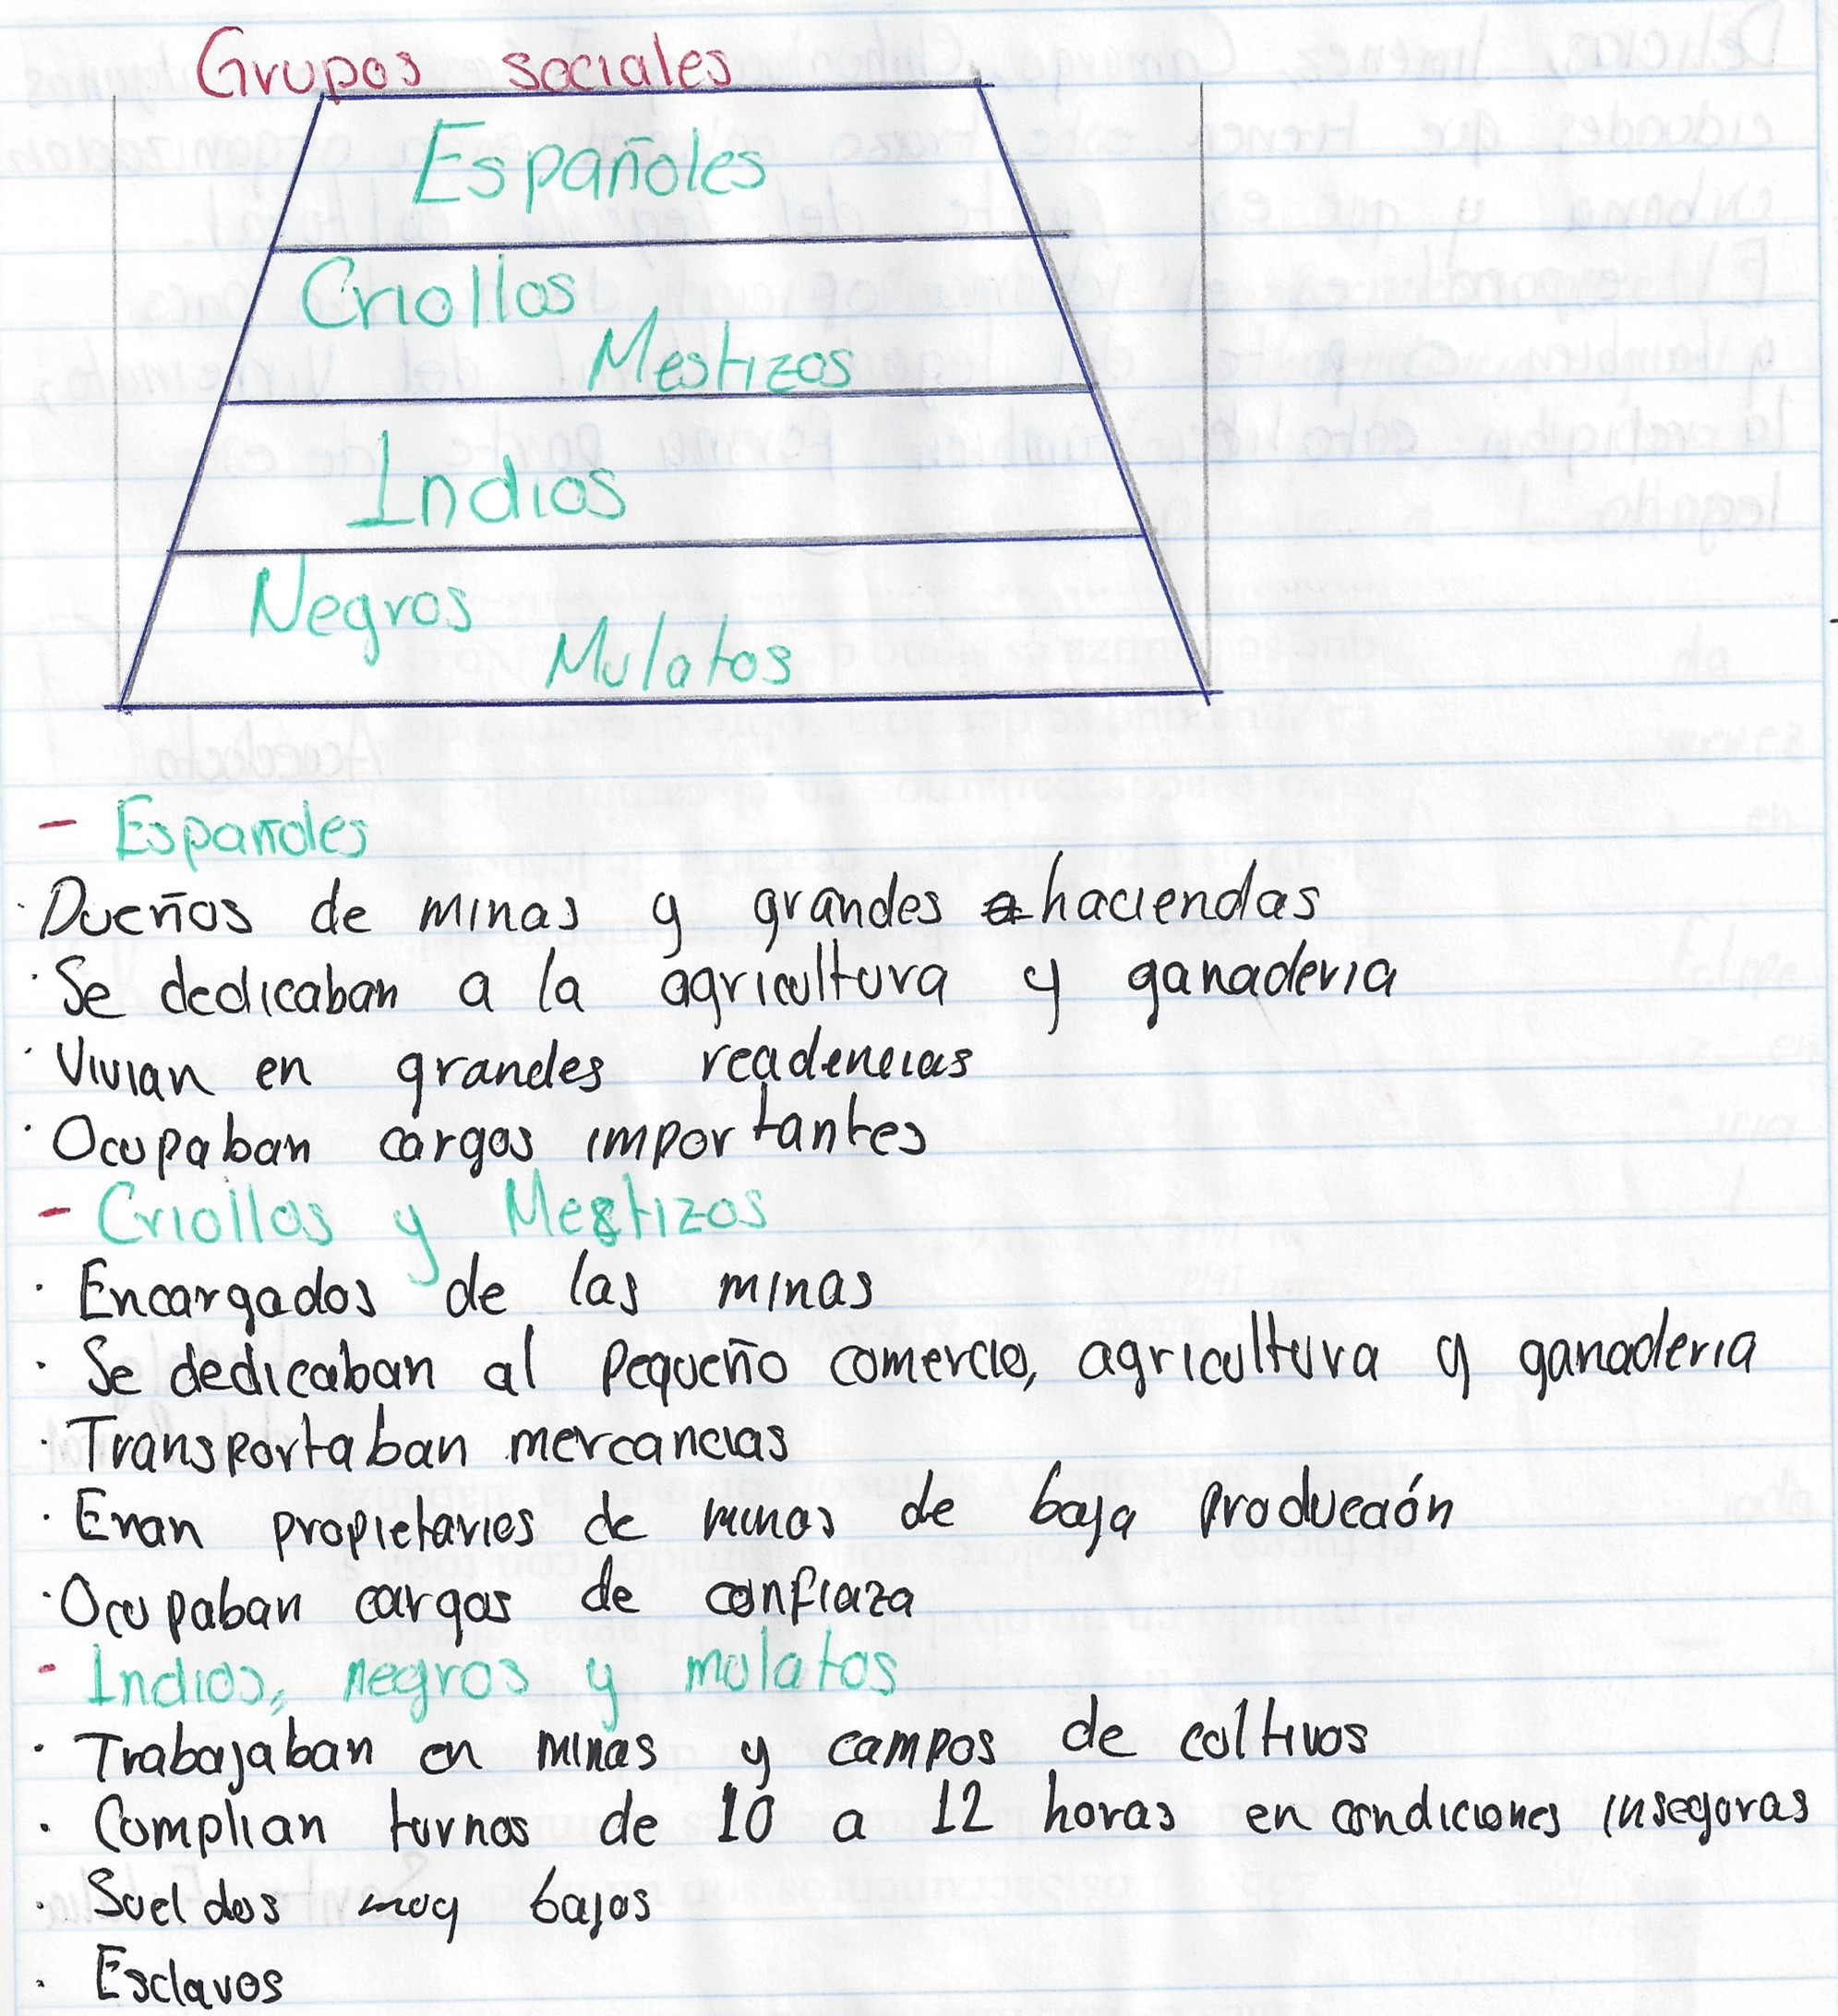 Grupos sociales
Españoles
Criollos
Mestizos
Indios
Negros
Mulatos
- Españoles
· Dueños de minas y grandes haciendas
· Se dedicaban a la agricultura y ganaderia
· Vivian en grandes readencias
· Ocupaban cargos importantes
- Criollos y Mestizos
· Encargados de las minas
· Se dedicaban al pequeño comercio, agricultura y ganaderia
· Transportaban mercancias
· Eran propietarios de minas de baja producción
· Ocupaban cargos de confiaza
- Indios, negros y mulatos
· Trabajaban en minas y campos de cultivos
· Complian turnos de 10 a 12 horas en condiciones inseguras
· Sueldos muy bajos
· Esclavos